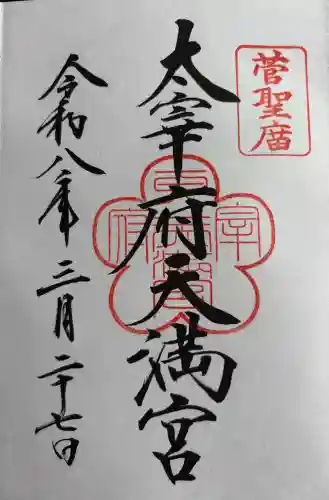 菅聖庿
太宰府天満宮
令和八年三月二十七日